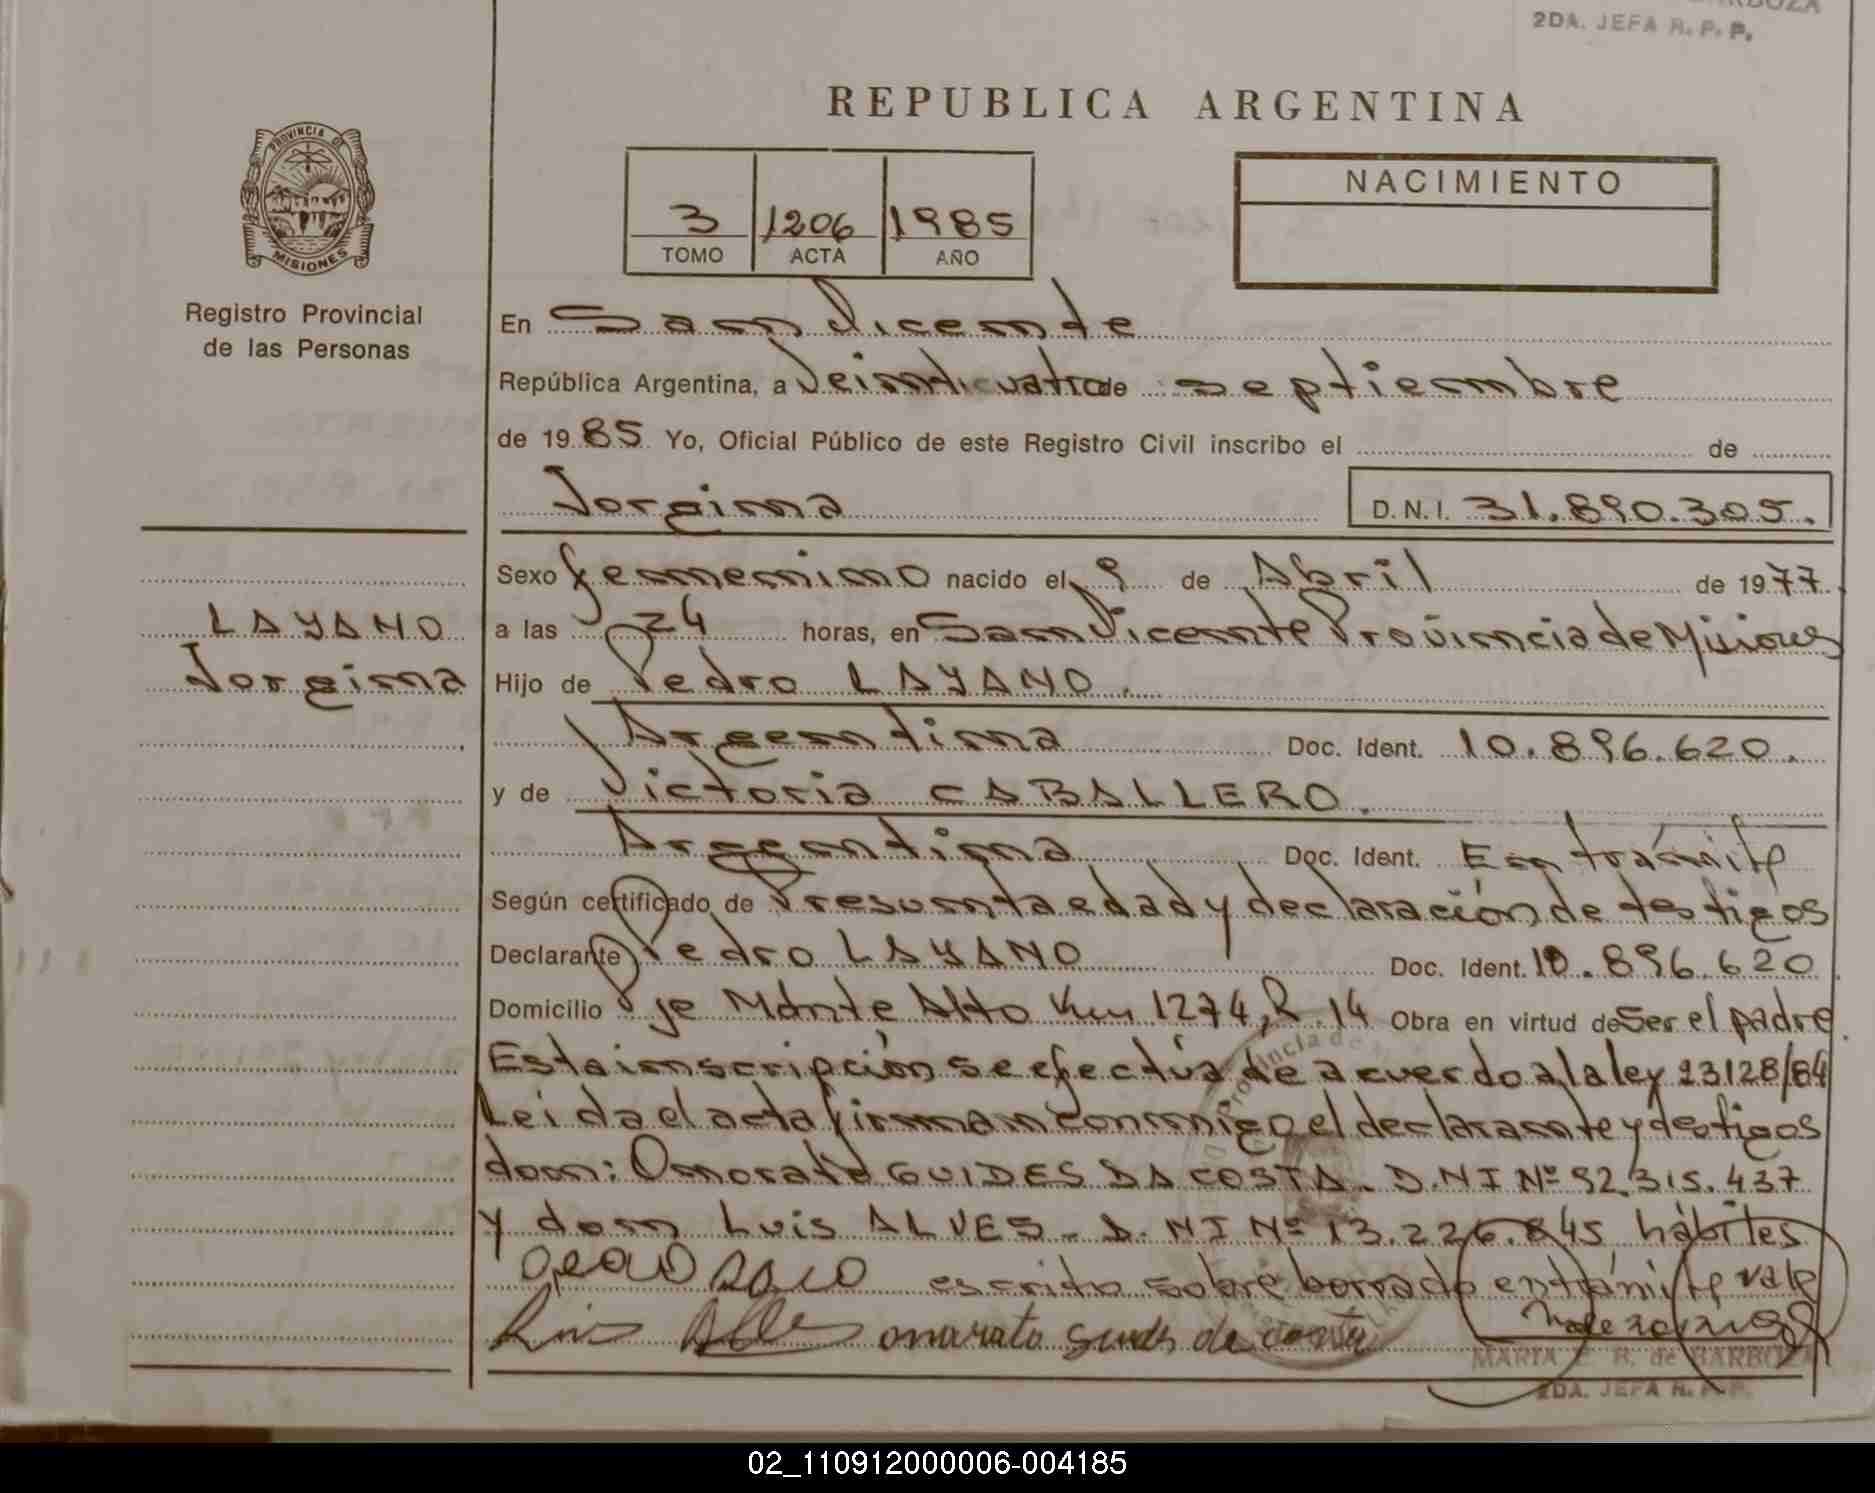 BARBOZA
2DA. JEFA R. P. P.
REPUBLICA ARGENTINA
PROVINCIA DE
MISIONES
Registro Provincial
de las Personas
3 1206 1985
TOMO ACTA AÑO
NACIMIENTO
En San Vicente
República Argentina, a Veinticuatro de septiembre
de 1985 Yo, Oficial Público de este Registro Civil inscribo el de
Jorgina D.N.I. 31.890.305.
LAYANO
Jorgina
Sexo femenino nacido el 9 de Abril de 1977
a las 24 horas, en San Vicente Provincia de Misiones
Hijo de Pedro LAYANO.
Argentina Doc. Ident. 10.896.620.
y de Victoria CABALLERO.
Argentina Doc. Ident. En trámite
Según certificado de Presunta edad y declaración de testigos
Declarante Pedro LAYANO Doc. Ident. 10.896.620
Domicilio Pje Monte Alto Km 1274, R. 14 Obra en virtud de Ser el padre
Esta inscripción se efectúa de acuerdo a la ley 23128/84
Leida el acta firman conmigo el declarante y testigos
don: Onorato GUIDES DA COSTA. D.NI Nº 92.315.437
y don Luis ALVES. D.NI Nº 13.226.845, hábiles
escrito sobre borrado en trámite vale
Luis Alves onarato de costa
MARIA E. B. de BARBOZA
2DA. JEFA R. P. P.
02_110912000006-004185